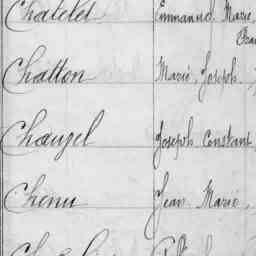 Chatelet Emmanuel Marie,
Chatton Marie, Joseph,
Chauzel Joseph Constant
Chenu Jean Marie,